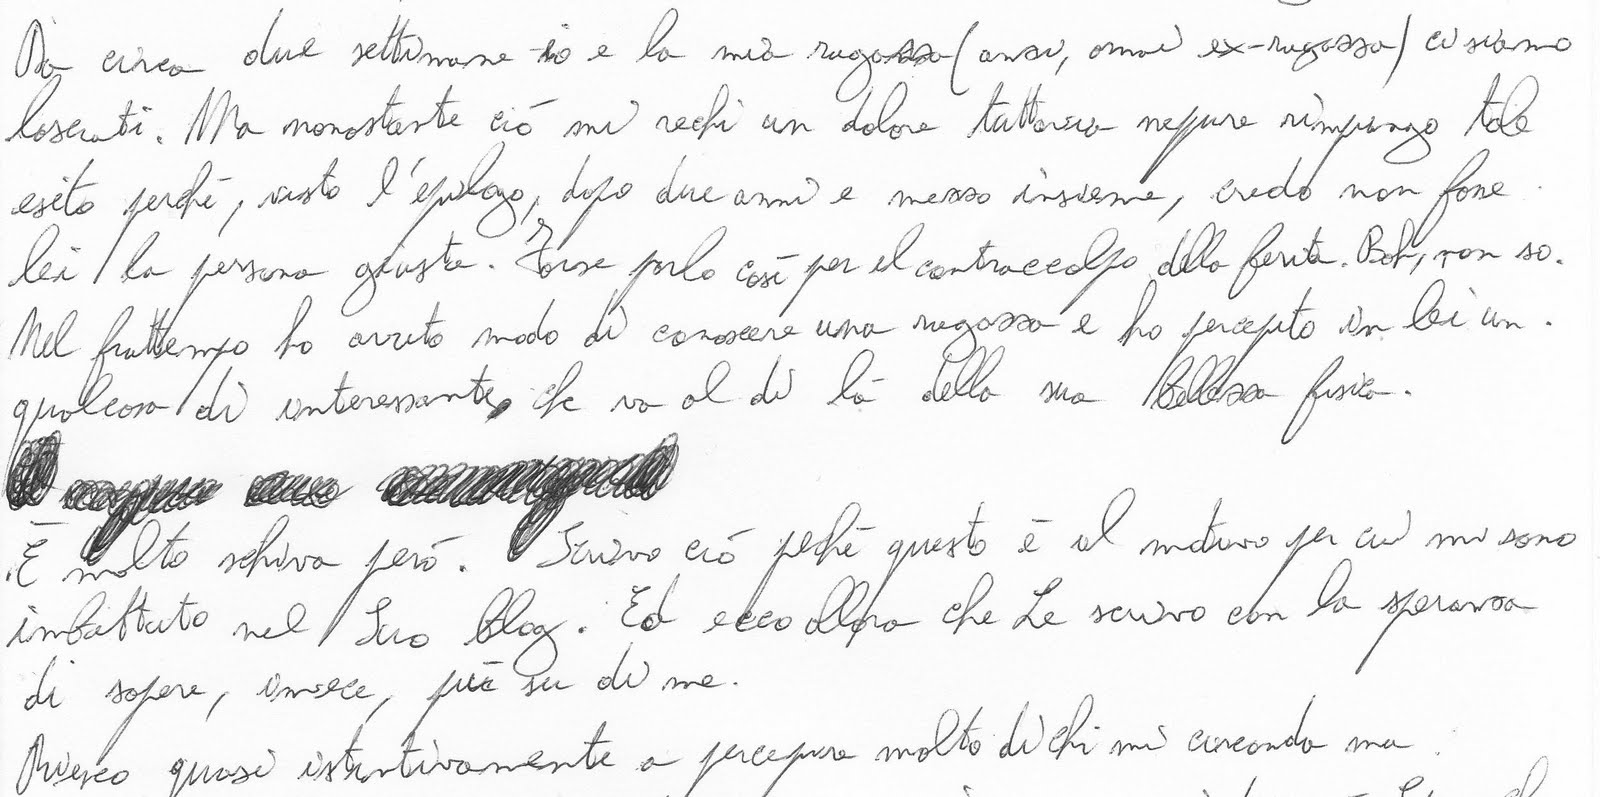 Da circa due settimane io e la mia ragazza (anzi, ormai ex-ragazza) ci siamo
lasciati. Ma nonostante ciò mi rechi un dolore tuttavia neppure rimpiango tale
esito perché, visto l'epilogo, dopo due anni e mezzo insieme, credo non fosse
lei la persona giusta. Forse parlo così per il contraccolpo della ferita. Boh, non so.
Nel frattempo ho avuto modo di conoscere una ragazza e ho percepito in lei un
qualcosa di interessante, che va al di là della sua bellezza fisica.
È molto schiva però. Scrivo ciò perché questo è il motivo per cui mi sono
imbattuto nel Suo blog. Ed ecco allora che Le scrivo con la speranza
di sapere, invece, più su di me.
Riesco quasi istintivamente a percepire molto di chi mi circonda ma